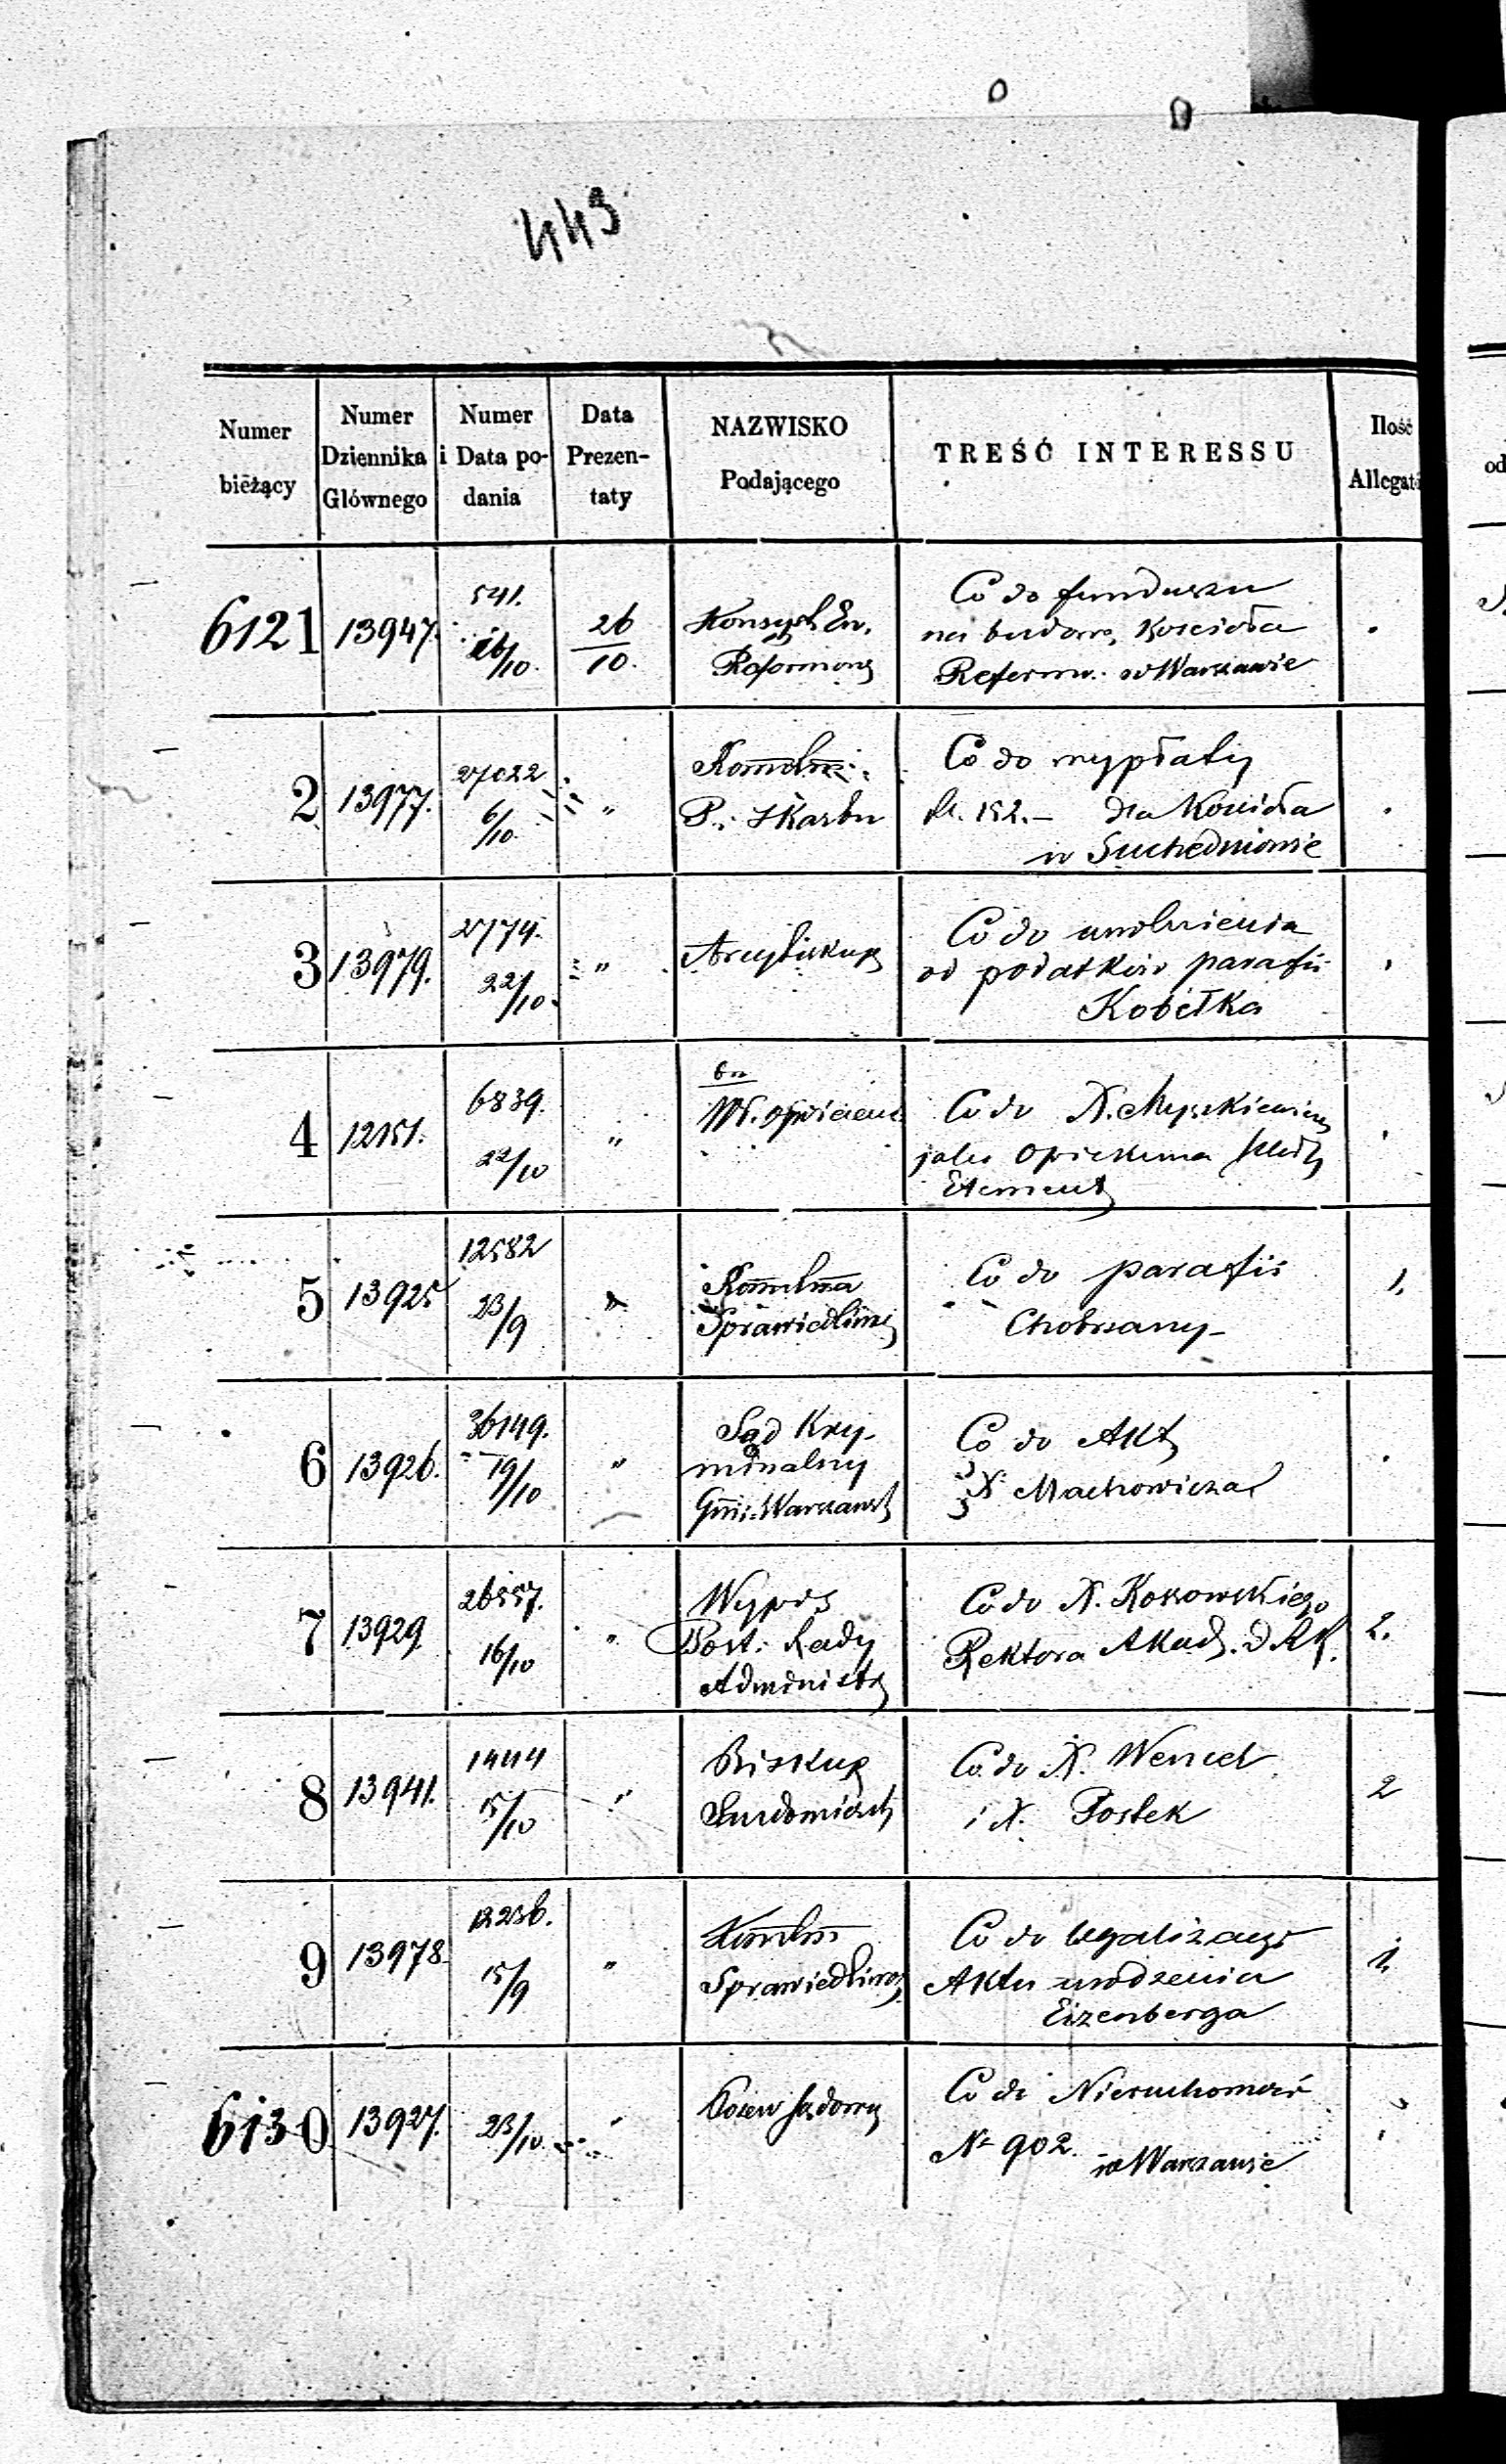 443
Numer bieżący
Numer Dziennika Głównego
Numer i Data podania
Data Prezentaty
NAZWISKO Podającego
TREŚĆ INTERESSU
Ilość
6121 13947. 541. 26/10. 26/10. Konsyst. Ew.
Reformow
Co do funduszu
na budowę Kościoła
Reform. w Warszawie
2 13977. 27022 6/10. "
P. Skarbu
Co do wypłaty
152.— dla Kościoła
w Suchedniowie
3 13979. 2774. 22/10. " Arcybiskup
Co do uwolnienia
od podatków parafii
Kobełka
4 12151. 6839. 22/10 "
Co do X. Myszkiewicz
jako Opiekuna
Element
5 13925 12582 23/9
Sprawiedliwoś
Co do parafii
Chobrzany
1.
6 13926. 36149. 19/10 " Sąd Kry-
minalny
Gni. Warszawsk
Co do Akt
X. Machowicza
7 13929 26557. 16/10 " Wypis
Post. Rady
Administr
Co do X. Kossowskiego
Rektora Akad. D. RK.
2.
8 13941. 1444 15/10 " Biskup
Sandomiersk
Co do X. Wencel
i X. Postek
2
9 13978. 12236. 15/9 "
Sprawiedliwoś
Co do legalizacyi
Aktu urodzenia
Eizenberga
1
6130 13927. 23/10. " Pozew sądowy
Co do Nieruchomość
No 902. w Warszawie